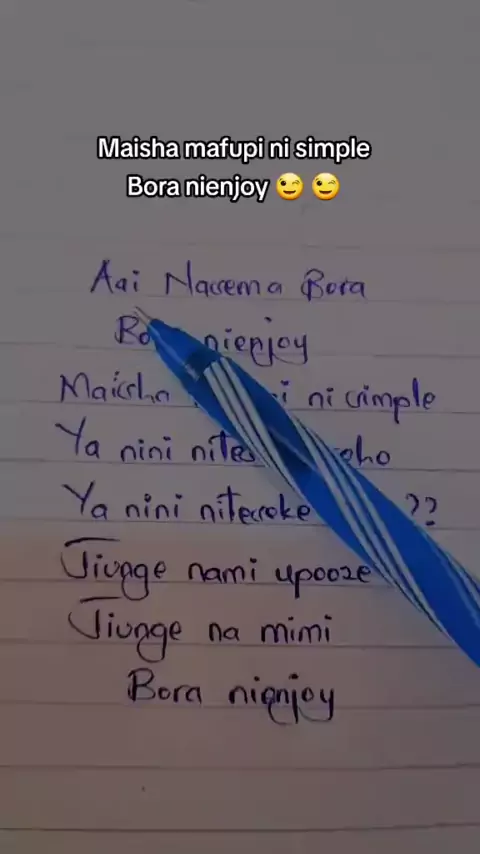 Maisha mafupi ni simple
Bora nienjoy 😉 😉
Aai Nasema Bora
nienjoy
Maisha ni simple
Ya nini
Ya nini niteseke ??
Jiunge nami upooze
Jiunge na mimi
Bora nienjoy